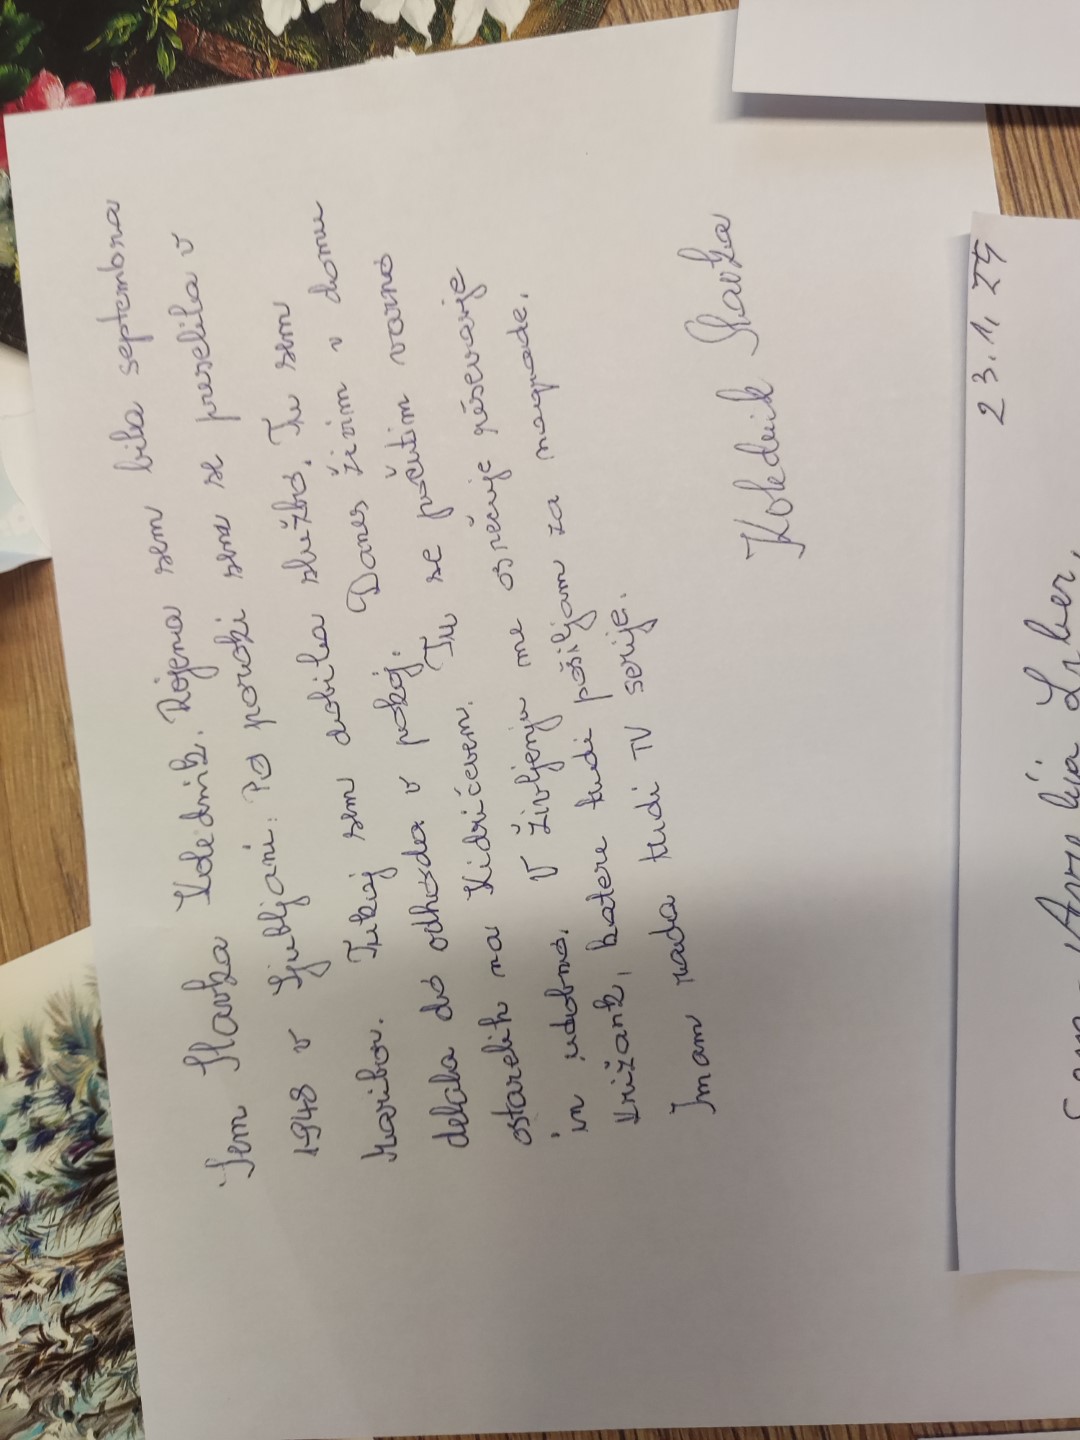 Sem Slavka Kolednik. Rojena sem bila septembra
1948 v Ljubljani. Po poroki sem se preselila v
Maribor. Tukaj sem dobila službo. Tu sem
delala do odhoda v pokoj. Danes živim v domu
ostarelih na Kidričevem. Tu se počutim varno
in udobno. V življenju me osrečuje reševanje
križank, katere tudi pošiljam za nagrade.
Imam rada tudi TV serije.
Kolednik Slavka
23.1.25